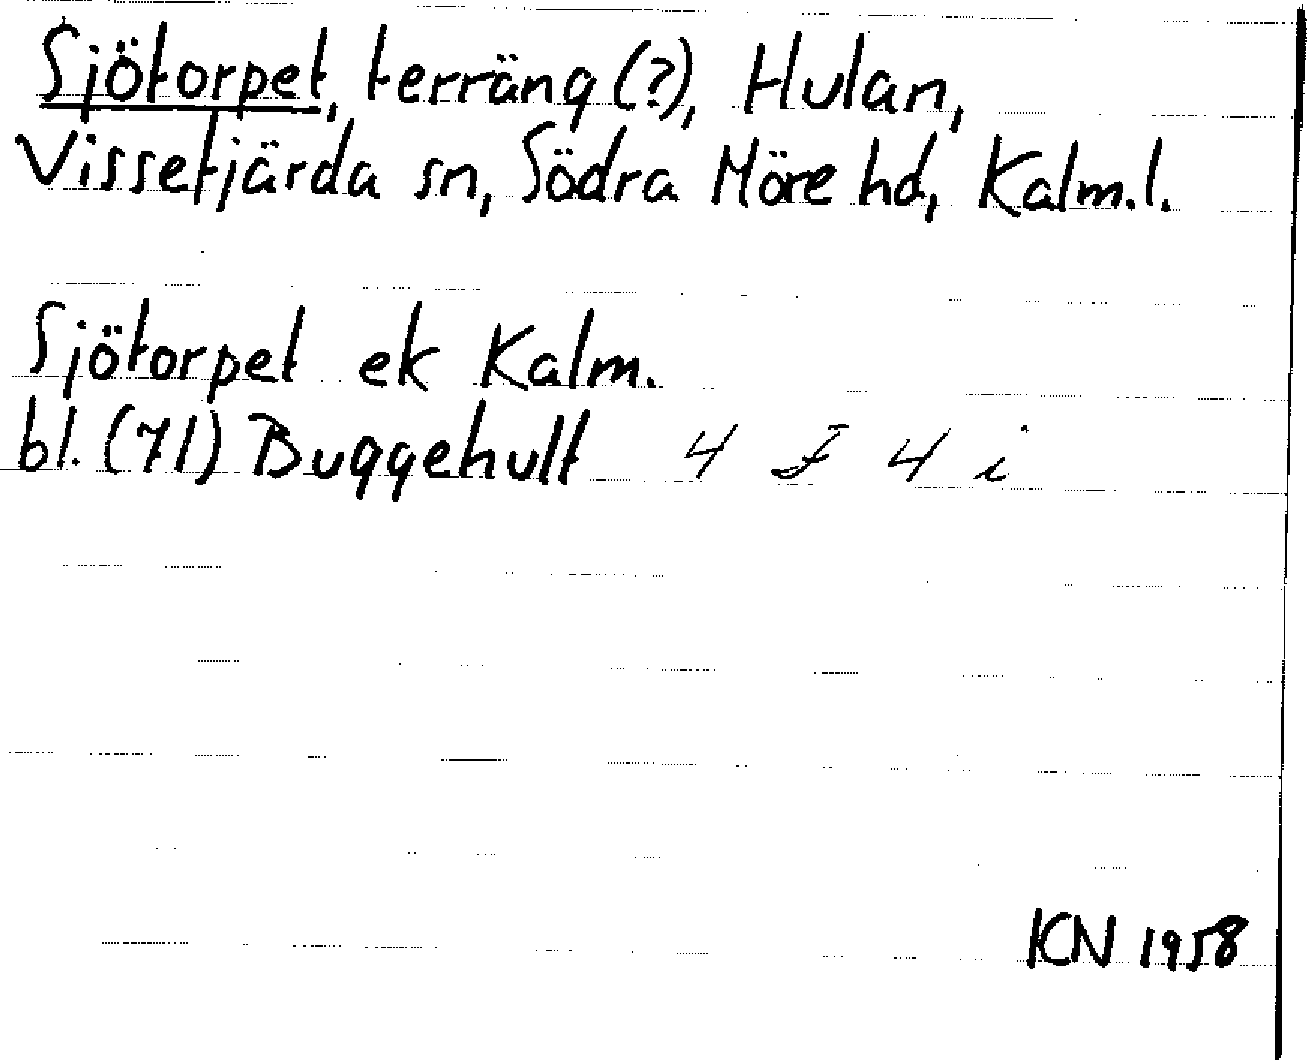 Sjötorpet, terräng (?), Hulan,
Vissefjärda sn, Södra Möre hd, Kalm. l.
Sjötorpet ek Kalm.
bl. (71) Buggehult 4 F 4 i
KN 1958